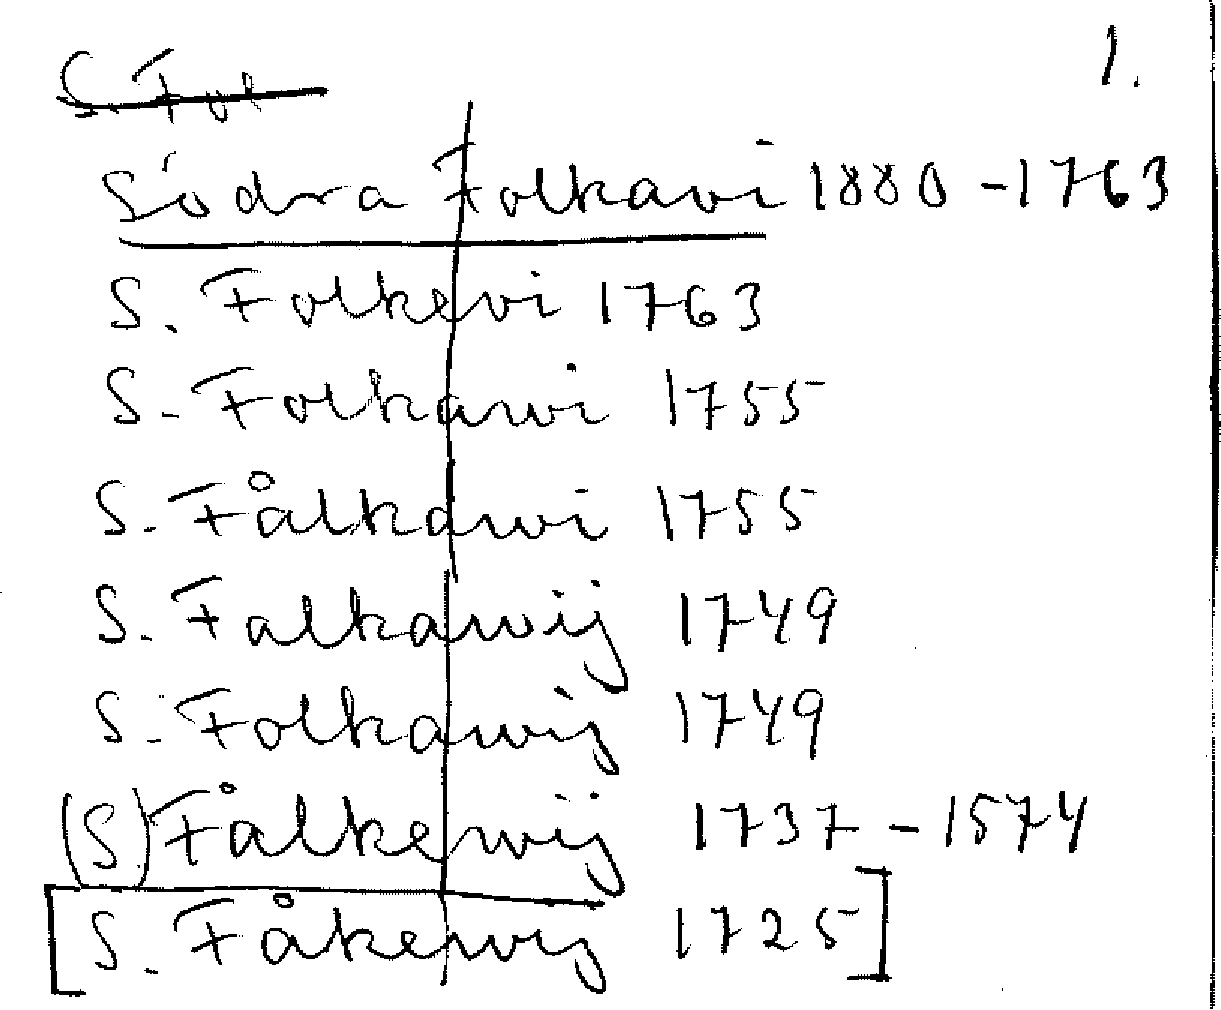 1.
S. Fol
Södra Folkavi 1880-1763
S. Folkevi 1763
S. Folkawi 1755
S. Fålkawi 1755
S. Falkawij 1749
S. Folkawij 1749
(S) Fålkewij 1737-1574
[S. Fåkewij 1725]